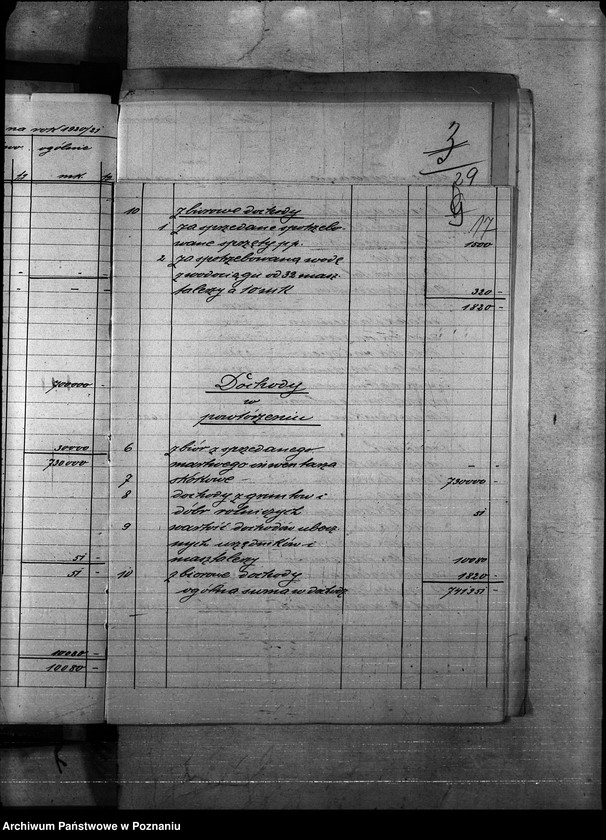 na rok 1920/21
ogólnie
mk
700000 -
30000
730000 -
51 -
51 -
10080 -
10080 -
3
29
17
10 zbiorowe dochody
1 za sprzedane spotrzebo-
wane sprzęty p.p. 1500
2 za spotrzebowaną wodę
z wodociągu od 32 masz-
talerzy à 10 mk 320 -
1820 -
Dochody
w
powtórzeniu
6 zbiór z sprzedanego
martwego inwentarza - -
7 skokowe - 730000 -
8 dochody z gruntów i
dóbr rolniczych 51
9 wartość dochodów ubocz-
nych urzędników i
masztalerzy 10080
10 zbiorowe dochody 1820 -
ogólna suma w dochodz 741951 -
Archiwum Państwowe w Poznaniu